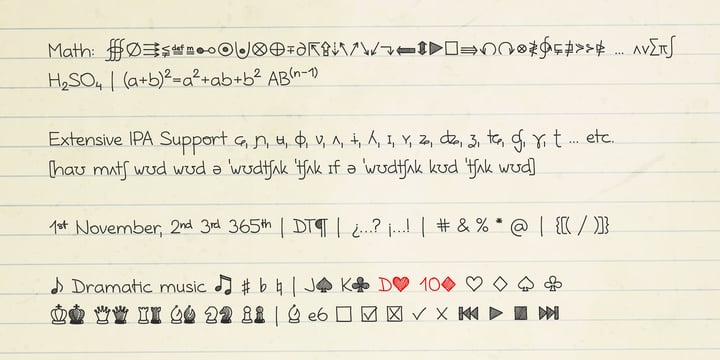 Math: ∰∅⇶≨≝≞⊷⊙⊍⊗⊕∓∂⇱⇧↓↖↗↘↙⤵⬅⬍▶□⇛↶↷⊗≹∲⊊⋣⋟⊱≢ … ∧∨∑π∫
H₂SO₄ | (a+b)²=a²+ab+b² AB⁽ⁿ⁻¹⁾
Extensive IPA Support ɕ, ɲ, ʉ, ɸ, ʋ, ʌ, ɨ, ʎ, ɪ, ʏ, ʑ, ʥ, ʒ, ʨ, ɠ, ɣ, ƭ … etc.
[haʊ mʌtʃ wʊd wʊd ə ˈwʊdtʃʌk ˈtʃʌk ɪf ə ˈwʊdtʃʌk kʊd ˈtʃʌk wʊd]
1st November, 2nd 3rd 365th | DT¶ | ¿…? ¡…! | # & % * @ | {[( / )]}
♪ Dramatic music ♫ ♯ ♭ ♮ | J♠ K♣ D♥ 10♦ ♡ ♢ ♤ ♧
♔♚ ♕♛ ♖♜ ♗♝ ♘♞ ♙♟ | ♗ e6 ☐ ☑ ☒ ✓ × ⏮ ▶ ■ ⏭